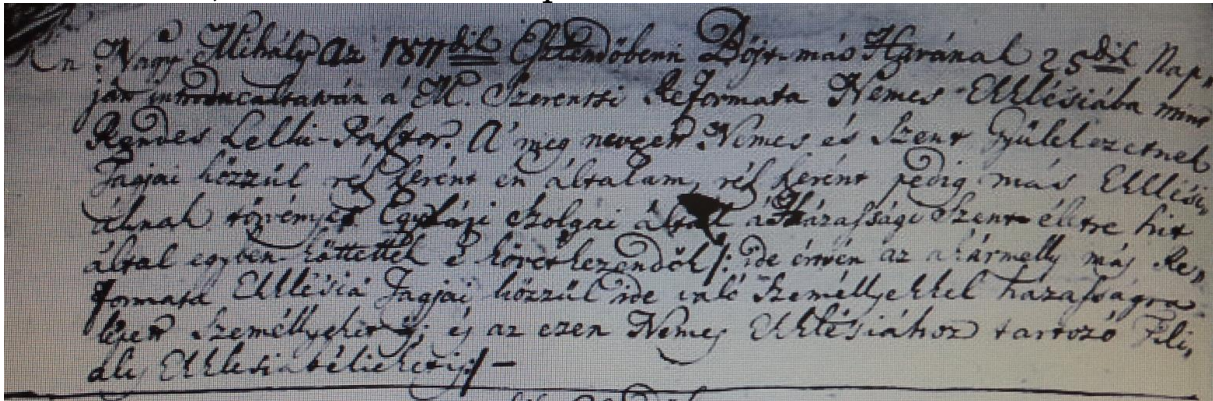 Én Nagy Mihály Az 1811dik Esztendőbenn Bőjt-más Havának 25dik Nap,,
ján introducáltatván á M. Szerentsi Reformata Nemes Ekklésiába mint
Rendes Lelki-Pásztor. A' meg nevezett Nemes és Szent Gyülekezetnek
Tagjai közzűl rész szerént én általam, rész szerént pedig más Ekklési,,
áknak törvényes Egyházi Szolgái által á Házassági Szent életre hit
által egyben-köttettek e' következendők /: ide értvén az akármelly más Re,,
formata Ekklésiá Tagjai közzűl ide való Személlyekkel házasságra
lépett Személlyeket is; és az ezen Nemes Ekklésiához tartozó Fili,,
ális Ekklesiabélieket is:/ –